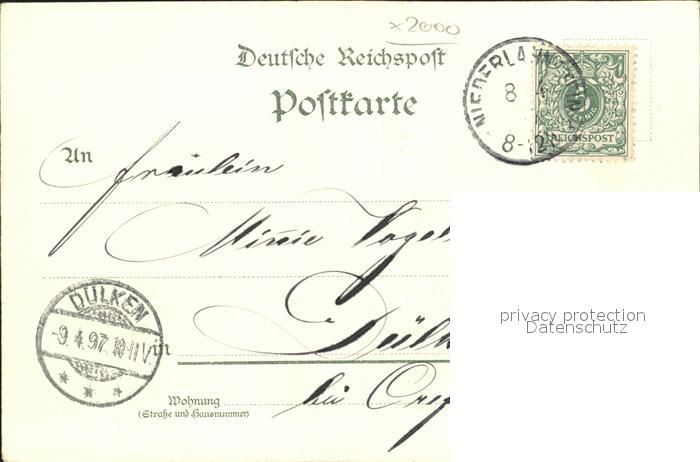 x2000
Deutsche Reichspost
Postkarte
NIEDERLAHNSTEIN
8
8-12
5
REICHSPOST
An
Fräulein
Minnie Vogels
DÜLKEN
-9.4.97.10-11V
in
Dülk
bei Cref
Wohnung
(Straße und Hausnummer)
privacy protection
Datenschutz